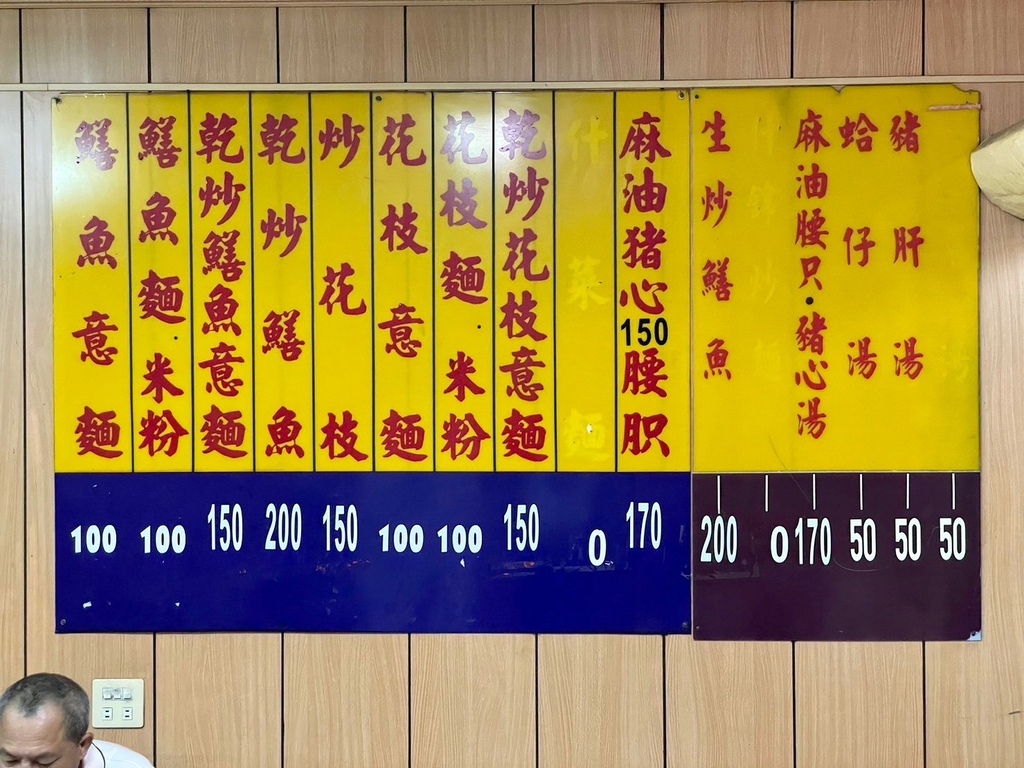 鱔魚意麵
100
鱔魚麵米粉
100
乾炒鱔魚意麵
150
乾炒鱔魚
200
炒花枝
150
花枝意麵
100
花枝麵米粉
100
乾炒花枝意麵
150
什菜麵
0
麻油猪心150腰胑
170
生炒鱔魚
200
什錦炒麵
0
麻油腰只・豬心湯
170
蛤仔湯
50
豬肝湯
50
湯
50